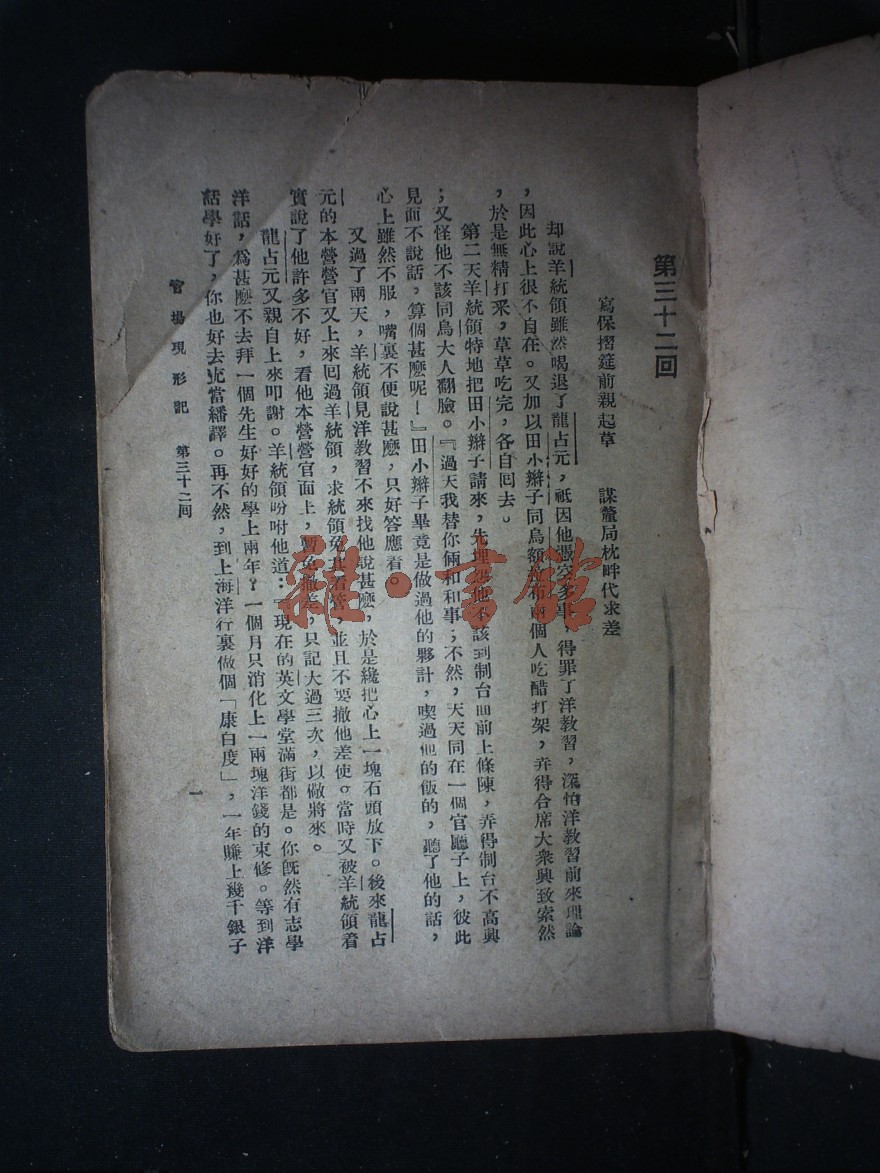 第三十二回
寫保摺筵前親起草　謀釐局枕畔代求差
却說羊統領雖然喝退了龍占元，祇因他憑空多事，得罪了洋教習，深怕洋教習前來理論
，因此心上很不自在。又加以田小辮子同烏額拉布兩個人吃醋打架，弄得合席大衆興致索然
，於是無精打采，草草吃完，各自回去。
第二天羊統領特地把田小辮子請來，先埋怨他不該到制台面前上條陳，弄得制台不高興
；又怪他不該同烏大人翻臉。『過天我替你倆和和事；不然，天天同在一個官廳子上，彼此
見面不說話，算個甚麽呢！』田小辮子畢竟是做過他的夥計，喫過他的飯的，聽了他的話，
心上雖然不服，嘴裏不便說甚麽，只好答應着。
又過了兩天，羊統領見洋教習不來找他說甚麽，於是纔把心上一塊石頭放下。後來龍占
元的本營營官又上來回過羊統領，求統領免其看管，並且不要撤他差使。當時又被羊統領着
實說了他許多不好，看他本營營官面上，暫免撤差，只記大過三次，以儆將來。
龍占元又親自上來叩謝。羊統領吩咐他道：『現在的英文學堂滿街都是。你旣然有志學
洋話，爲甚麽不去拜一個先生好好的學上兩年？一個月只消化上一兩塊洋錢的束修。等到洋
話學好了，你也好去充當繙譯。再不然，到上海洋行裏做個「康白度」，一年賺上幾千銀子
官場現形記　第三十二回
一
雜·書館